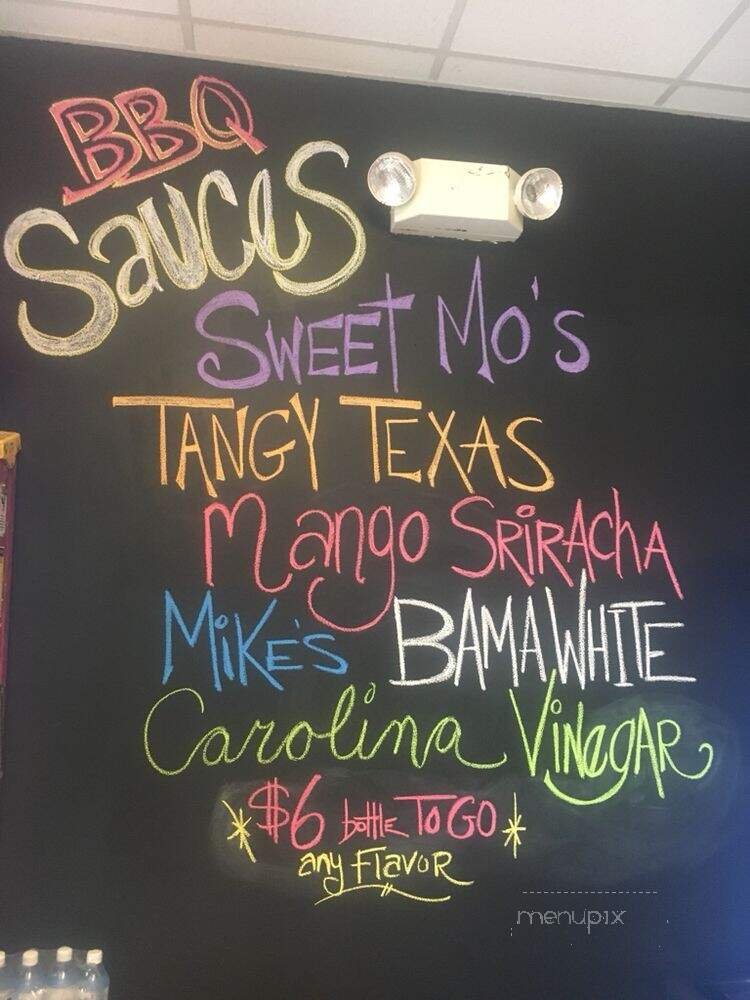 BBQ
SauceS
SWEET MO's
TANGY TEXAS
Mango SRIRAChA
MiKE'S BAMA WHITE
Carolina VINegAR
*$6 bottle TO GO*
any FlavoR
menupix